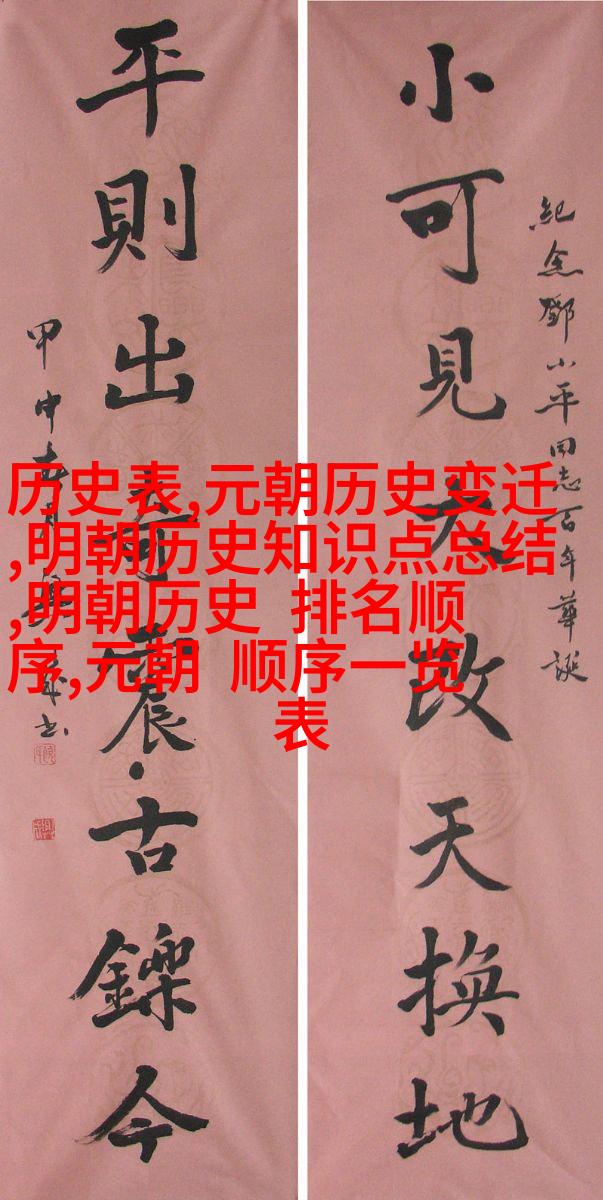 紀念鄧小平同志百年華誕
小可見大改天換地
平則出奇震古鑠今
甲申春月
书
历史表,元朝历史变迁
,明朝历史知识点总结
,明朝历史 排名顺
序,元朝 顺序一览
表